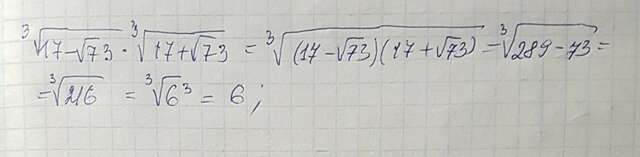 ∛(17-√73) · ∛(17+√73) = ∛((17-√73)(17+√73)) = ∛(289-73) =
= ∛216 = ∛6³ = 6;